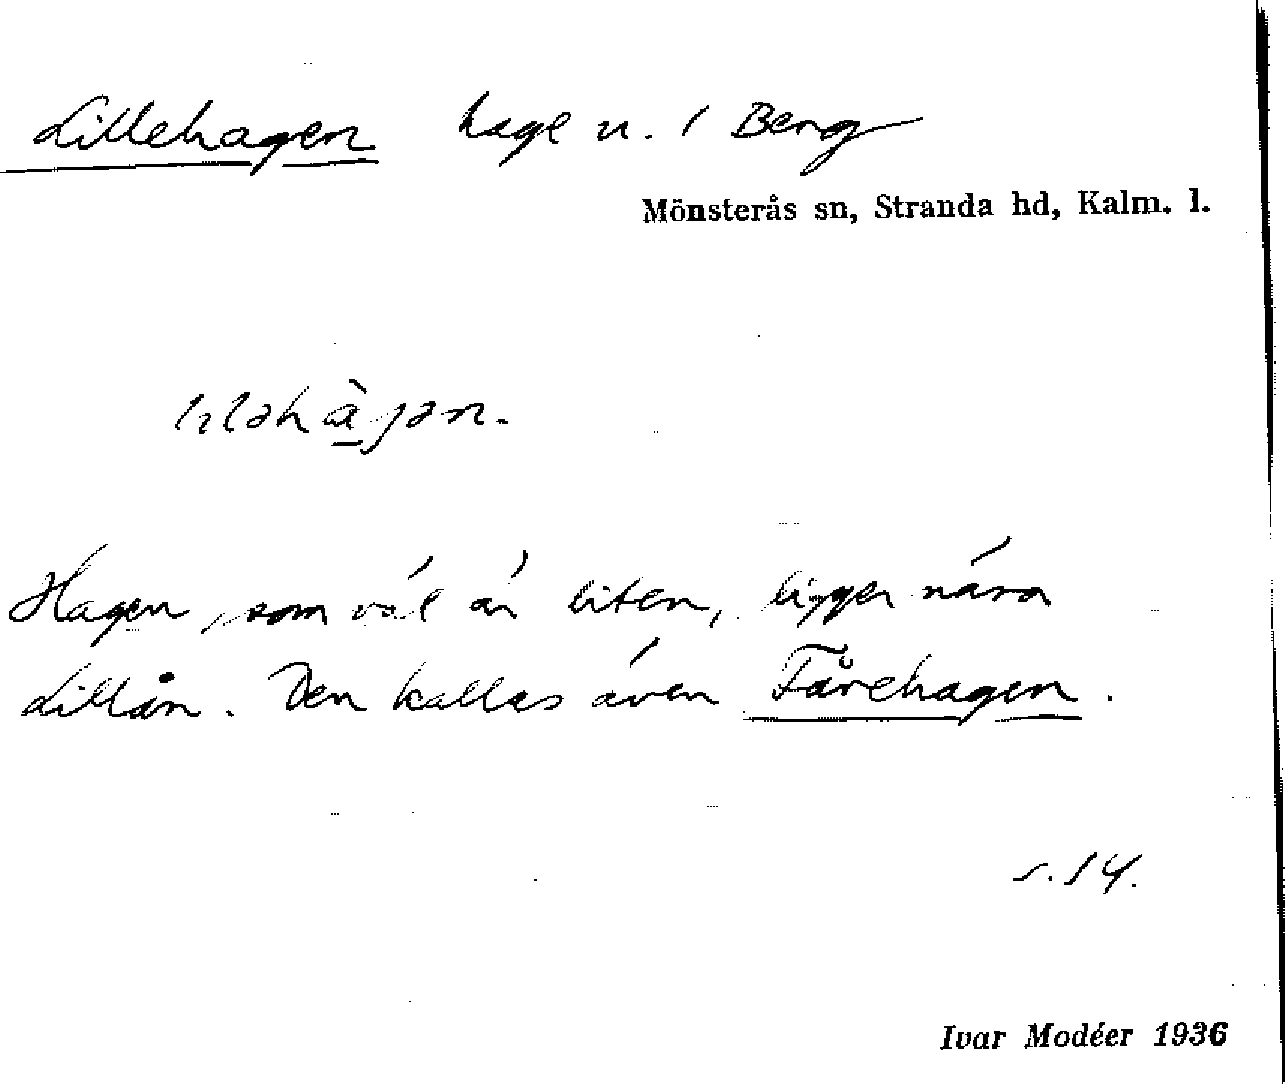 Lillehagen hage u. 1 Berg
Mönsterås sn, Stranda hd, Kalm. l.
Hagen, som väl är liten, ligger nära
Lillån. Den kallas även Fårehagen.
s. 14.
Ivar Modéer 1936